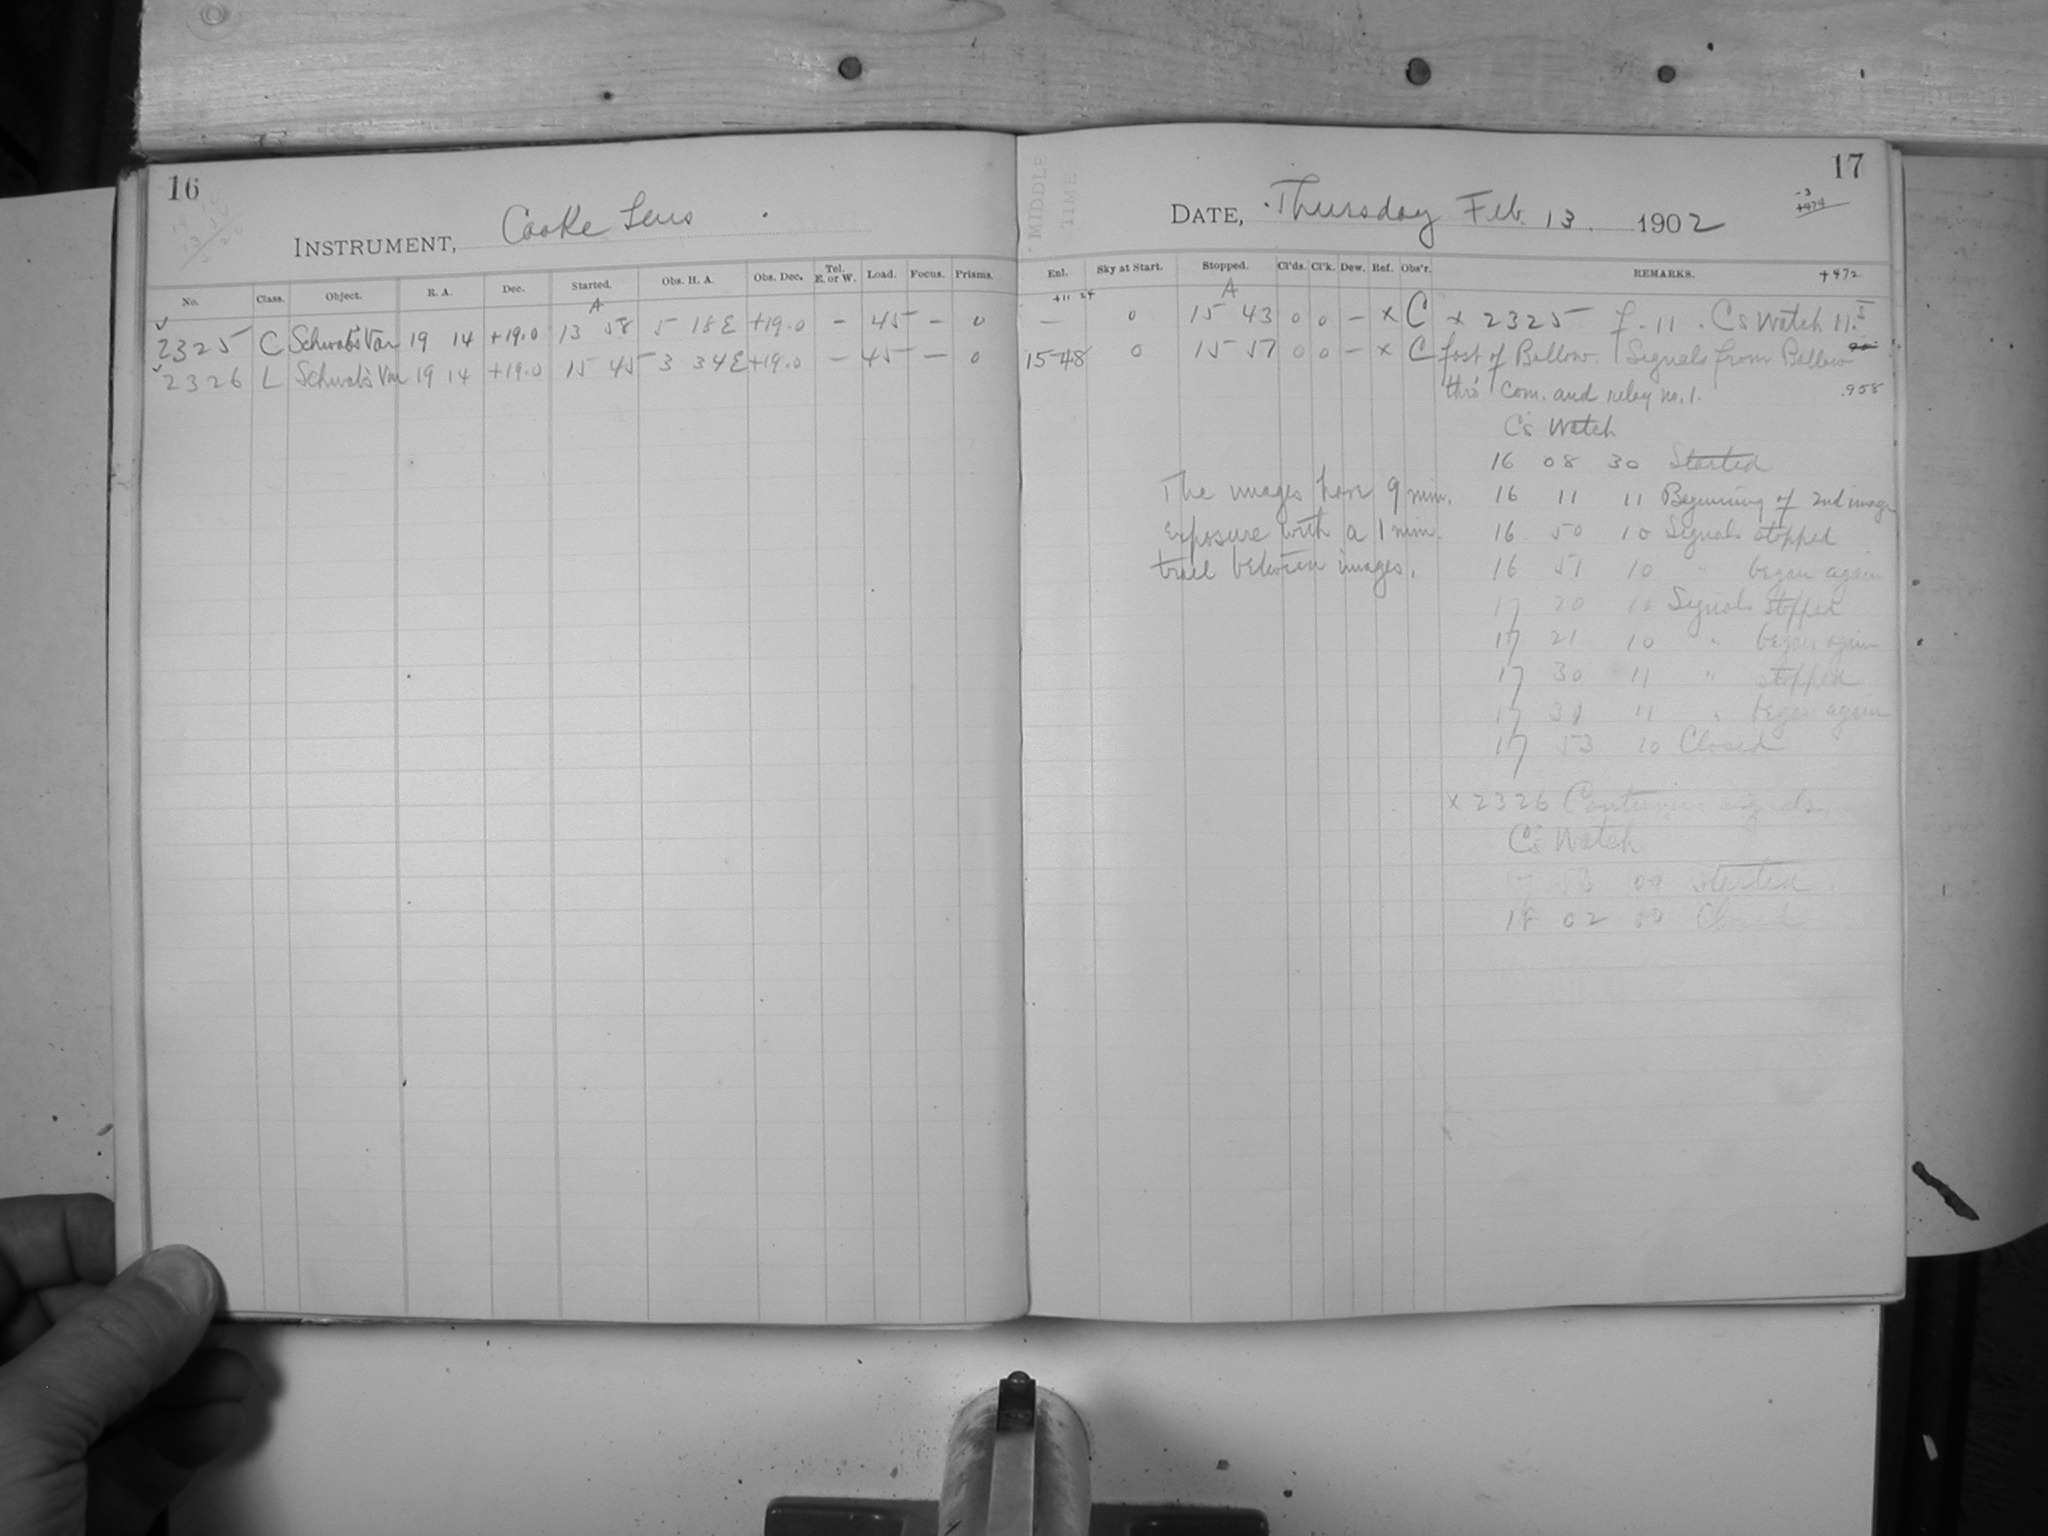 16
INSTRUMENT, Cooke Lens
No. Class. Object. R. A. Dec. Started. Obs. H. A. Obs. Dec. Tel. E. or W. Load. Focus. Prisms.
A
2325 C Schwab's Var 19 14 +19.0 13 58 5 18 E +19.0 – 45 – 0
2326 L Schwab's Var 19 14 +19.0 15 45 3 34 E +19.0 – 45 – 0
MIDDLE
TIME
17
DATE, Thursday Feb. 13. 1902
-3
+474
Enl. Sky at Start. Stopped. Cl'ds. Cl'k. Dew. Ref. Obs'r. REMARKS. +472
+11 24 A
— 0 15 43 0 0 – x C x 2325 f. 11. C's Watch 11.
15 48 0 15 57 0 0 – x C fast of Bellow. Signals from Bellow
thro' Com. and relay no. 1. .958
C's Watch
16 08 30 Started
The images have 9 min. 16 11 11 Beginning of 2nd image
exposure with a 1 min. 16 50 10 Signals stopped
trail between images. 16 51 10 " began again
17 20 10 Signals stopped
17 21 10 " began again
17 30 11 " stopped
17 31 11 " began again
17 53 10 Closed
x 2326 Continuous signals.
C's Watch
17 53 09 Started
18 02 00 Closed